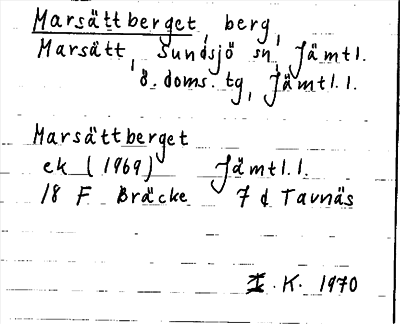 Marsättberget, berg,
Marsätt, Sundsjö sn, Jämtl.
ö. doms. tg, Jämtl. l.
Marsättberget
ek (1969) Jämtl. l.
18 F Bräcke 7 d Tavnäs
I. K. 1970